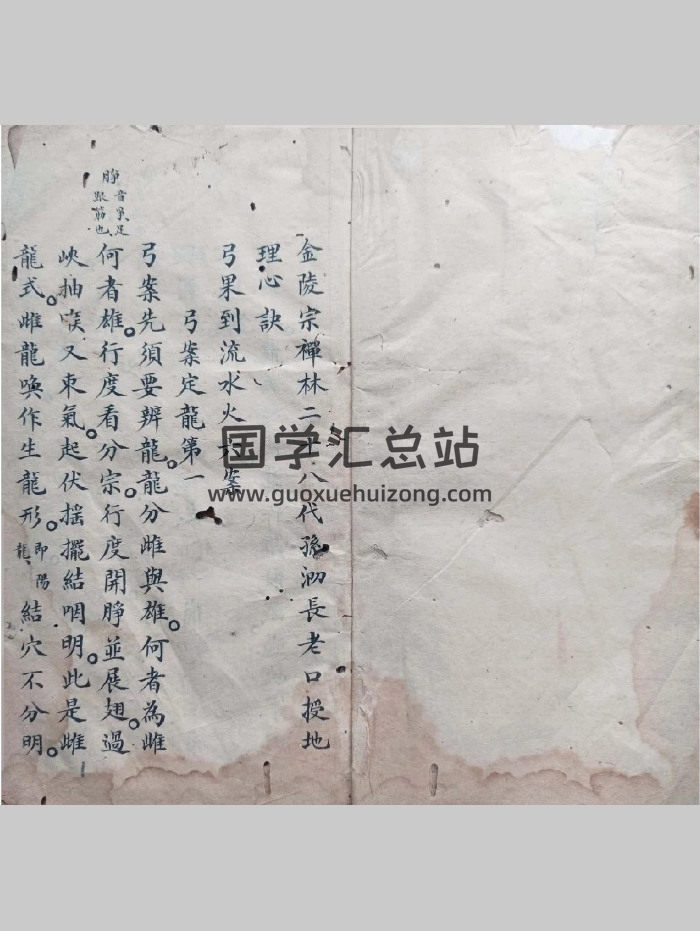 金陵宗禪林二十八代孫泐長老口授地
理心訣
弓果到流水火案
弓案定龍第一
弓案先須要辨龍。龍分雌與雄。何者為雌
睜音爭足跟筋也
何者雄。行度看分宗。行度開睜並展翅。過
峽抽喉又束氣。起伏搖擺結咽明。此是雌
龍式。雌龍喚作生龍形。即陽龍結穴不分明。
国学汇总站
www.guoxuehuizong.com